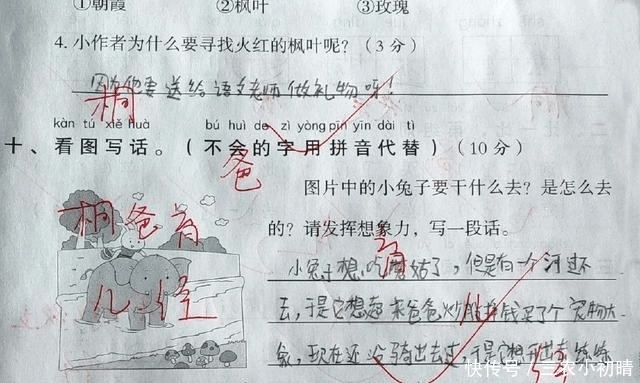 ①朝霞 ②枫叶 ③玫瑰
4.小作者为什么要寻找火红的枫叶呢?(3分)
因为他要送给语文老师做礼物呀!
kàn tú xiě huà bú huì de zì yòng pīn yīn dài tì
十、看图写话。(不会的字用拼音代替)(10分)
图片中的小兔子要干什么去?是怎么去
的?请发挥想象力,写一段话。
小兔子想吃蘑菇了,但是有一个河过不
去,于是它想起来爸爸炒股挣钱买了个宠物大
象,现在还没骑出去过,于是它想
桐
爸
桐爸为
儿
快传号/三农小初晴